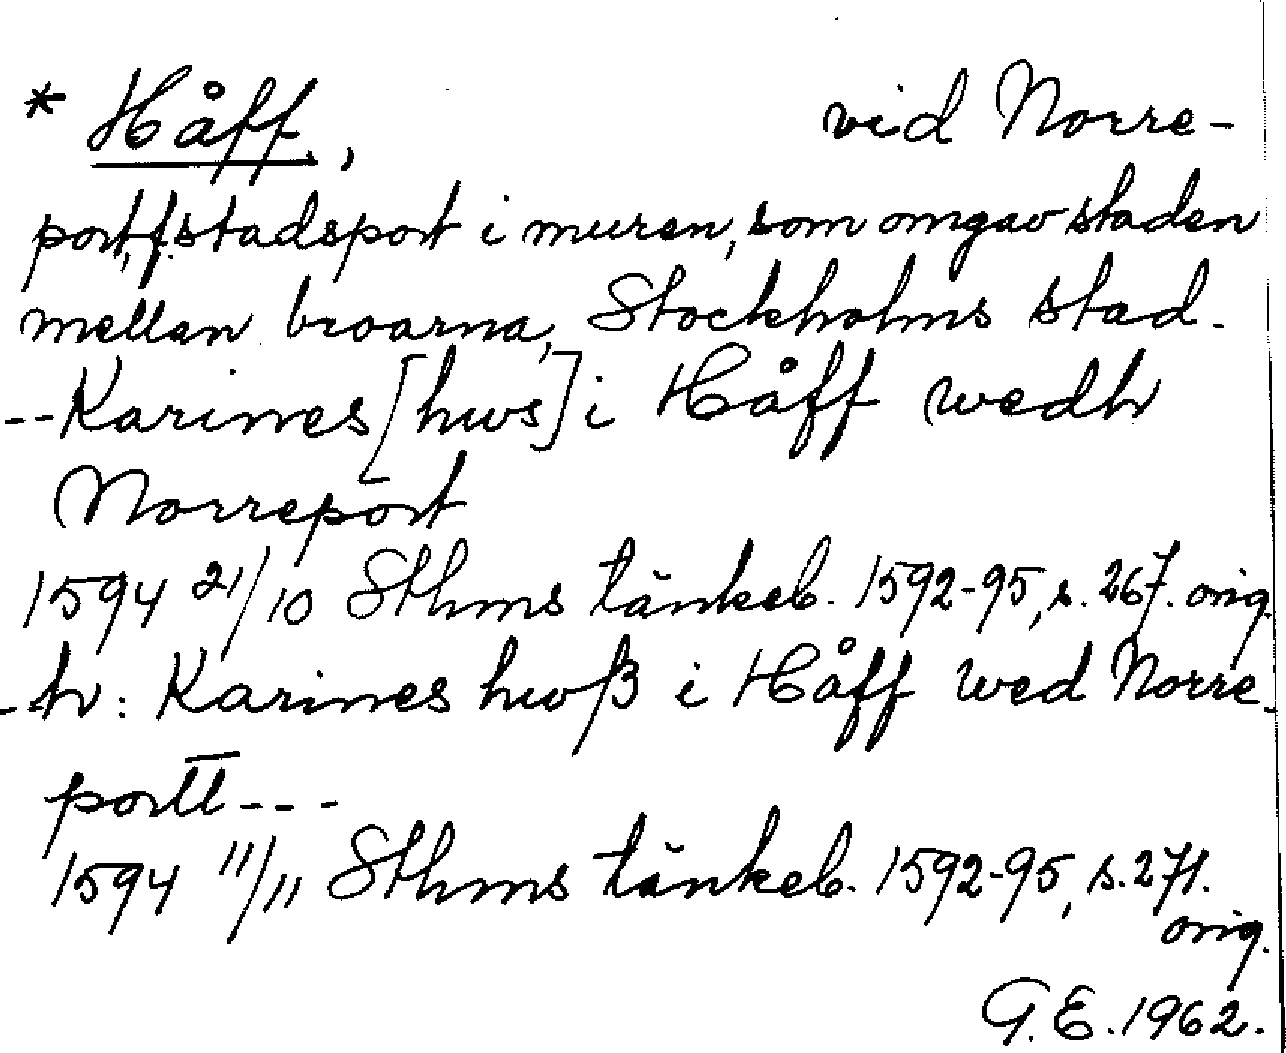 * Håff, vid Norre-
port, f. stadsport i muren, som omgav staden
mellan broarna, Stockholms stad.
-- Karines [hws] i Håff wedh
Norreport
1594 21/10 Sthms tänkeb. 1592-95, s. 267. orig.
- h: Karines hwß i Håff wed Norre-
portt ---
1594 11/11 Sthms tänkeb. 1592-95, s. 271.
orig.
G. E. 1962.